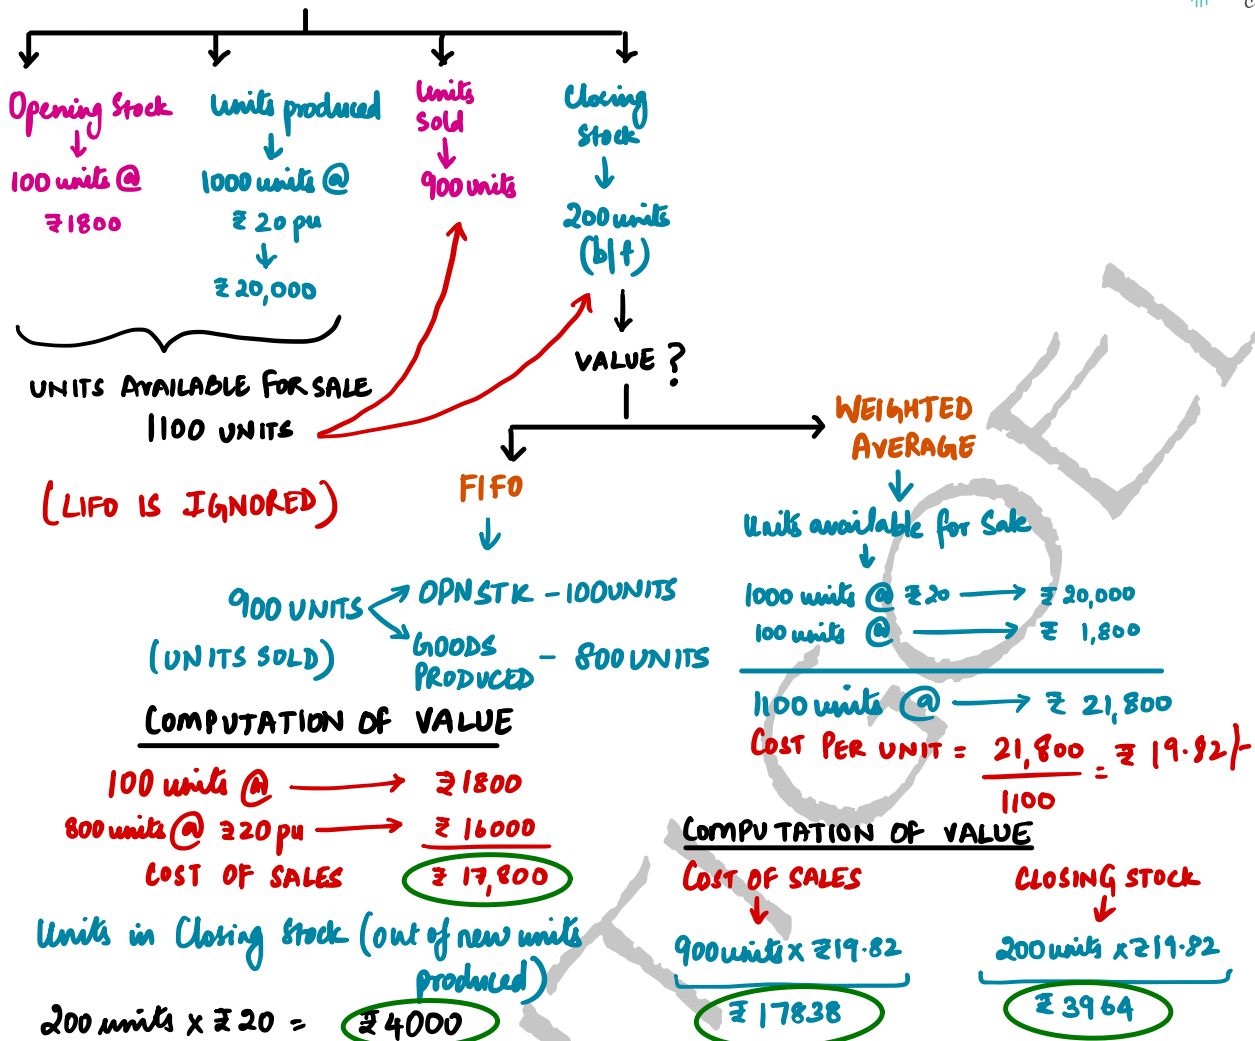 Opening Stock
100 units @
₹1800
Units produced
1000 units @
₹ 20 pu
₹ 20,000
Units
Sold
900 units
Closing
Stock
200 units
(b/f)
VALUE ?
UNITS AVAILABLE FOR SALE
1100 UNITS
(LIFO IS IGNORED)
FIFO
900 UNITS
(UNITS SOLD)
OPNSTK - 100UNITS
GOODS
PRODUCED - 800 UNITS
COMPUTATION OF VALUE
100 units @ ₹1800
800 units @ ₹20 pu ₹ 16000
COST OF SALES ₹ 17,800
Units in Closing Stock (out of new units
produced)
200 units x ₹20 = ₹4000
WEIGHTED
AVERAGE
Units available for Sale
1000 units @ ₹20 ₹ 20,000
100 units @ ₹ 1,800
1100 units @ ₹ 21,800
COST PER UNIT = 21,800 = ₹ 19.82/-
1100
COMPUTATION OF VALUE
COST OF SALES
900 units x ₹19.82
₹ 17838
CLOSING STOCK
200 units x ₹19.82
₹ 3964